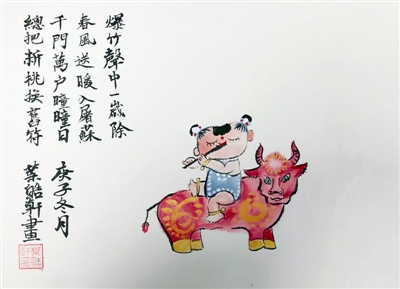 爆竹聲中一歲除
春風送暖入屠蘇
千門萬户曈曈日
總把新桃換舊符
庚子冬月
葉皓軒畫